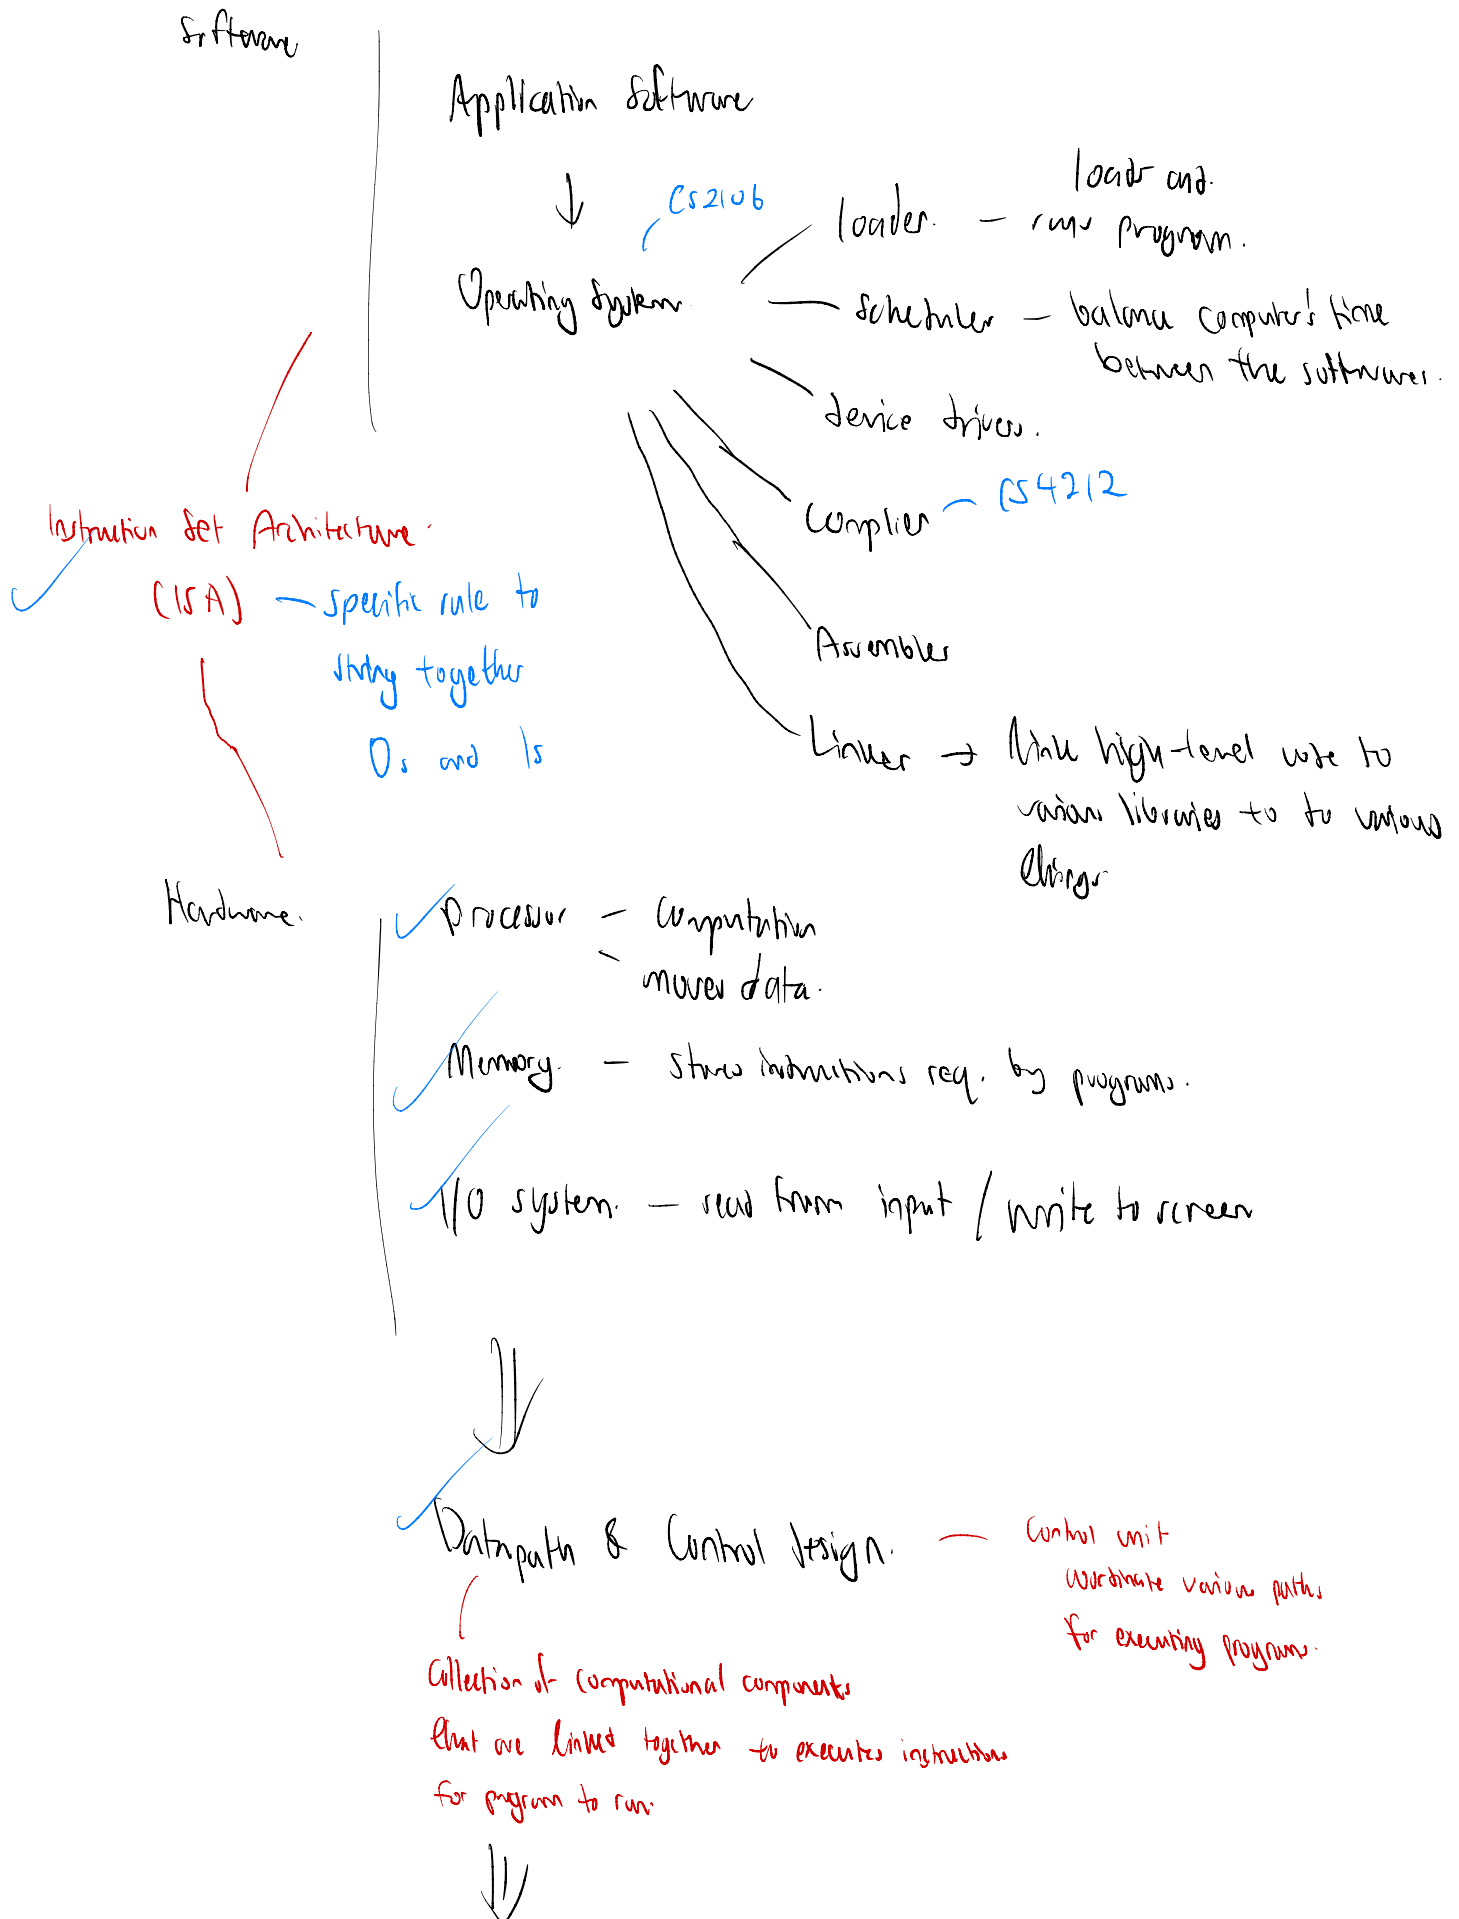 Software
Application Software
CS2106
Operating System
loader. — loads and
runs program.
Scheduler — balance computer's time
between the softwares.
device drivers.
Complier — CS4212
Assembler
Linker → link high-level code to
various libraries to to various
things
Instruction Set Architecture.
(ISA) — specific rule to
string together
0s and 1s
Hardware.
Processor — computation
moves data.
Memory. — stores instructions req. by programs.
I/O system. — read from input / write to screen
Datapath & Control design. — Control unit
coordinate various paths
for executing programs.
Collection of computational components
that are linked together to executes instructions
for program to run.